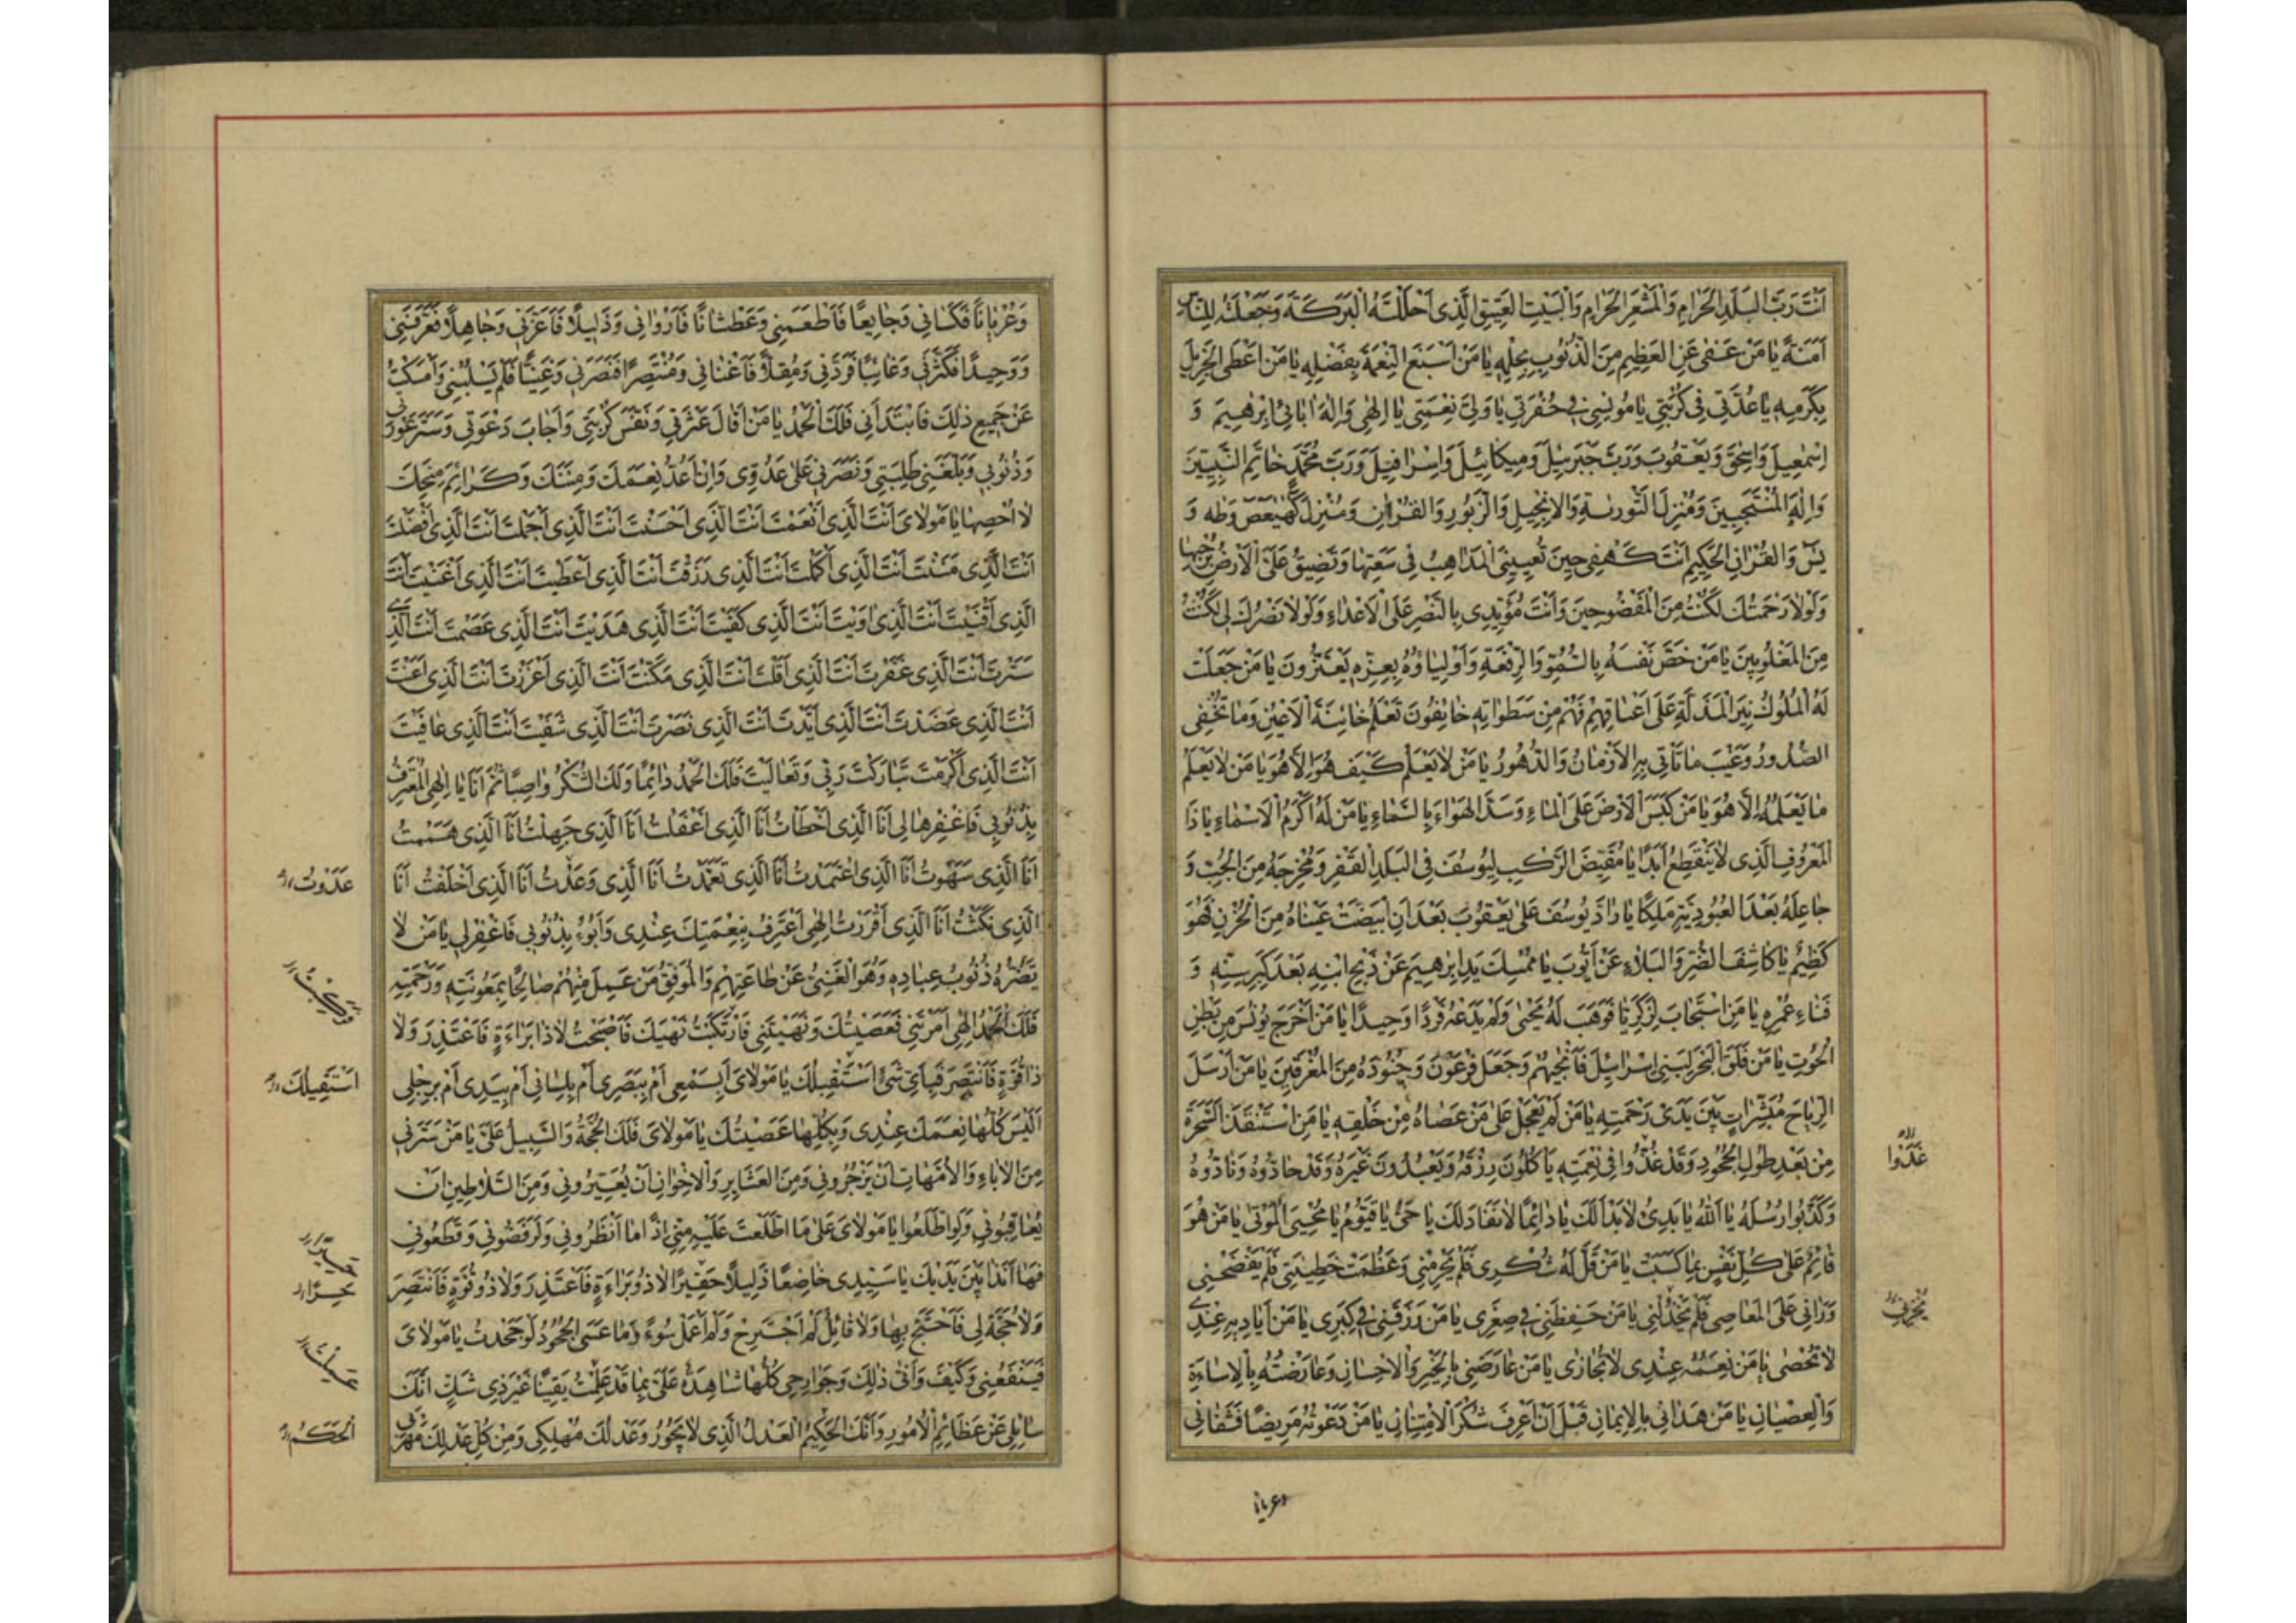 اَنْتَ رَبَّ الْبَلَدِ الْحَرَامِ وَالْمَشْعَرِ الْحَرَامِ وَالْبَيْتِ الْعَتِيقِ الَّذِى اَحْلَلْتَهُ الْبَرَكَةَ وَجَعَلْتَهُ لِلنَّاسِ
اَمَنَةً يَا مَنْ عَفٰى عَنِ الْعَظِيمِ مِنَ الذُّنُوبِ بِحِلْمِهِ يَا مَنْ اَسْبَغَ النِّعْمَةَ بِفَضْلِهِ يَا مَنْ اَعْطَى الْجَزِيلَ
بِكَرَمِهِ يَا عُدَّتِى فِى كُرْبَتِى يَا مُونِسِى فِى حُفْرَتِى يَا وَلِىَّ نِعْمَتِى يَا اِلٰهِى وَاِلٰهَ اٰبَائِى اِبْرٰهِيمَ وَ
اِسْمٰعِيلَ وَاِسْحٰقَ وَيَعْقُوبَ وَرَبَّ جَبْرَئِيلَ وَمِيكَائِيلَ وَاِسْرَافِيلَ وَرَبَّ مُحَمَّدٍ خَاتِمِ النَّبِيِّينَ
وَاٰلِهِ الْمُنْتَجَبِينَ وَمُنْزِلَ التَّوْرٰيةِ وَالْاِنْجِيلِ وَالزَّبُورِ وَالْقُرْاٰنِ وَمُنْزِلَ كٓهٰيٰعٓصٓ وَطٰه وَ
يٰسٓ وَالْقُرْاٰنِ الْحَكِيمِ اَنْتَ كَهْفِى حِينَ تُعْيِينِى الْمَذَاهِبُ فِى سَعَتِهَا وَتَضِيقُ عَلَىَّ الْاَرْضُ بِرُحْبِهَا
وَلَوْلَا رَحْمَتُكَ لَكُنْتُ مِنَ الْمَفْضُوحِينَ وَاَنْتَ مُؤَيِّدِى بِالنَّصْرِ عَلَى الْاَعْدَاءِ وَلَوْلَا نَصْرُكَ لِى لَكُنْتُ
مِنَ الْمَغْلُوبِينَ يَا مَنْ خَصَّ نَفْسَهُ بِالسُّمُوِّ وَالرِّفْعَةِ وَاَوْلِيَاؤُهُ بِعِزِّهِ يَعْتَزُّونَ يَا مَنْ جَعَلَتْ
لَهُ الْمُلُوكُ نِيرَ الْمَذَلَّةِ عَلٰى اَعْنَاقِهِمْ فَهُمْ مِنْ سَطَوَاتِهِ خَائِفُونَ تَعْلَمُ خَائِنَةَ الْاَعْيُنِ وَمَا تُخْفِى
الصُّدُورُ وَغَيْبَ مَا تَأْتِى بِهِ الْاَزْمَانُ وَالدُّهُورُ يَا مَنْ لَا يَعْلَمُ كَيْفَ هُوَ اِلَّا هُوَ يَا مَنْ لَا يَعْلَمُ
مَا يَعْلَمُهُ اِلَّا هُوَ يَا مَنْ كَبَسَ الْاَرْضَ عَلَى الْمَاءِ وَسَدَّ الْهَوَاءَ بِالسَّمَاءِ يَا مَنْ لَهُ اَكْرَمُ الْاَسْمَاءِ يَا ذَا
الْمَعْرُوفِ الَّذِى لَا يَنْقَطِعُ اَبَدًا يَا مُقَيِّضَ الرَّكْبِ لِيُوسُفَ فِى الْبَلَدِ الْقَفْرِ وَمُخْرِجَهُ مِنَ الْجُبِّ وَ
جَاعِلَهُ بَعْدَ الْعُبُودِيَّةِ مَلِكًا يَا رَادَّ يُوسُفَ عَلٰى يَعْقُوبَ بَعْدَ اَنِ ابْيَضَّتْ عَيْنَاهُ مِنَ الْحُزْنِ فَهُوَ
كَظِيمٌ يَا كَاشِفَ الضُّرِّ وَالْبَلَاءِ عَنْ اَيُّوبَ يَا مُمْسِكَ يَدِ اِبْرٰهِيمَ عَنْ ذَبْحِ ابْنِهِ بَعْدَ كِبَرِ سِنِّهِ وَ
فَنَاءِ عُمْرِهِ يَا مَنِ اسْتَجَابَ لِزَكَرِيَّا فَوَهَبَ لَهُ يَحْيٰى وَلَمْ يَدَعْهُ فَرْدًا وَحِيدًا يَا مَنْ اَخْرَجَ يُونُسَ مِنْ بَطْنِ
الْحُوتِ يَا مَنْ فَلَقَ الْبَحْرَ لِبَنِى اِسْرَائِيلَ فَاَنْجٰيهُمْ وَجَعَلَ فِرْعَوْنَ وَجُنُودَهُ مِنَ الْمُغْرَقِينَ يَا مَنْ اَرْسَلَ
الرِّيَاحَ مُبَشِّرَاتٍ بَيْنَ يَدَىْ رَحْمَتِهِ يَا مَنْ لَمْ يَعْجَلْ عَلٰى مَنْ عَصَاهُ مِنْ خَلْقِهِ يَا مَنِ اسْتَنْقَذَ السَّحَرَةَ
مِنْ بَعْدِ طُولِ الْجُحُودِ وَقَدْ غَدَوْا فِى نِعْمَتِهِ يَأْكُلُونَ رِزْقَهُ وَيَعْبُدُونَ غَيْرَهُ وَقَدْ حَادُّوهُ وَنَادُّوهُ
وَكَذَّبُوا رُسُلَهُ يَا اَللّٰهُ يَا بَدِىءُ لَا بَدْاَ لَكَ يَا دَائِمًا لَا نَفَادَ لَكَ يَا حَىُّ يَا قَيُّومُ يَا مُحْيِىَ الْمَوْتٰى يَا مَنْ هُوَ
قَائِمٌ عَلٰى كُلِّ نَفْسٍ بِمَا كَسَبَتْ يَا مَنْ قَلَّ لَهُ شُكْرِى فَلَمْ يَحْرِمْنِى وَعَظُمَتْ خَطِيئَتِى فَلَمْ يَفْضَحْنِى
وَرَاٰنِى عَلَى الْمَعَاصِى فَلَمْ يَخْذُلْنِى يَا مَنْ حَفِظَنِى فِى صِغَرِى يَا مَنْ رَزَقَنِى فِى كِبَرِى يَا مَنْ اَيَادِيهِ عِنْدِى
لَا تُحْصٰى يَا مَنْ نِعَمُهُ عِنْدِى لَا تُجَازٰى يَا مَنْ عَارَضَنِى بِالْخَيْرِ وَالْاِحْسَانِ وَعَارَضْتُهُ بِالْاِسَاءَةِ
وَالْعِصْيَانِ يَا مَنْ هَدَانِى بِالْاِيمَانِ قَبْلَ اَنْ اَعْرِفَ شُكْرَ الْاِمْتِنَانِ يَا مَنْ دَعَوْتُهُ مَرِيضًا فَشَفَانِى
غَدَوْا
وعريانا
وَعُرْيَانًا فَكَسَانِى وَجَايِعًا فَاَطْعَمَنِى وَعَطْشَانًا فَاَرْوَانِى وَذَلِيلًا فَاَعَزَّنِى وَجَاهِلًا فَعَرَّفَنِى
وَوَحِيدًا فَكَثَّرَنِى وَغَائِبًا فَرَدَّنِى وَمُقِلًّا فَاَغْنَانِى وَمُنْتَصِرًا فَنَصَرَنِى وَغَنِيًّا فَلَمْ يَسْلُبْنِى وَاَمْسَكْتُ
عَنْ جَمِيعِ ذٰلِكَ فَابْتَدَاَنِى فَلَكَ الْحَمْدُ يَا مَنْ اَقَالَ عَثْرَتِى وَنَفَّسَ كُرْبَتِى وَاَجَابَ دَعْوَتِى وَسَتَرَ عَوْرَتِى
وَذُنُوبِى وَبَلَّغَنِى طَلِبَتِى وَنَصَرَنِى عَلٰى عَدُوِّى وَاِنْ اَعُدَّ نِعَمَكَ وَمِنَنَكَ وَكَرَائِمَ مِنَحِكَ
لَا اُحْصِهَا يَا مَوْلَاىَ اَنْتَ الَّذِى اَنْعَمْتَ اَنْتَ الَّذِى اَحْسَنْتَ اَنْتَ الَّذِى اَجْمَلْتَ اَنْتَ الَّذِى اَفْضَلْتَ
اَنْتَ الَّذِى مَنَنْتَ اَنْتَ الَّذِى اَكْمَلْتَ اَنْتَ الَّذِى رَزَقْتَ اَنْتَ الَّذِى اَعْطَيْتَ اَنْتَ الَّذِى اَغْنَيْتَ اَنْتَ
الَّذِى اَقْنَيْتَ اَنْتَ الَّذِى اٰوَيْتَ اَنْتَ الَّذِى كَفَيْتَ اَنْتَ الَّذِى هَدَيْتَ اَنْتَ الَّذِى عَصَمْتَ اَنْتَ الَّذِى
سَتَرْتَ اَنْتَ الَّذِى غَفَرْتَ اَنْتَ الَّذِى اَقَلْتَ اَنْتَ الَّذِى مَكَّنْتَ اَنْتَ الَّذِى اَعْزَزْتَ اَنْتَ الَّذِى اَعَنْتَ
اَنْتَ الَّذِى عَضَدْتَ اَنْتَ الَّذِى اَيَّدْتَ اَنْتَ الَّذِى نَصَرْتَ اَنْتَ الَّذِى شَفَيْتَ اَنْتَ الَّذِى عَافَيْتَ
اَنْتَ الَّذِى اَكْرَمْتَ تَبَارَكْتَ رَبِّى وَتَعَالَيْتَ فَلَكَ الْحَمْدُ دَائِمًا وَلَكَ الشُّكْرُ وَاصِبًا ثُمَّ اَنَا يَا اِلٰهِى الْمُعْتَرِفُ
بِذُنُوبِى فَاغْفِرْهَا لِى اَنَا الَّذِى اَخْطَاْتُ اَنَا الَّذِى اَغْفَلْتُ اَنَا الَّذِى جَهِلْتُ اَنَا الَّذِى هَمَمْتُ
اَنَا الَّذِى سَهَوْتُ اَنَا الَّذِى اعْتَمَدْتُ اَنَا الَّذِى تَعَمَّدْتُ اَنَا الَّذِى وَعَدْتُ اَنَا الَّذِى اَخْلَفْتُ اَنَا
الَّذِى نَكَثْتُ اَنَا الَّذِى اَقْرَرْتُ اِلٰهِى اَعْتَرِفُ بِنِعْمَتِكَ عِنْدِى وَاَبُوءُ بِذُنُوبِى فَاغْفِرْ لِى يَا مَنْ لَا
يَضُرُّهُ ذُنُوبُ عِبَادِهِ وَهُوَ الْغَنِىُّ عَنْ طَاعَتِهِمْ وَالْمُوَفِّقُ مَنْ عَمِلَ مِنْهُمْ صَالِحًا بِمَعُونَتِهِ وَرَحْمَتِهِ
فَلَكَ الْحَمْدُ اِلٰهِى اَمَرْتَنِى فَعَصَيْتُكَ وَنَهَيْتَنِى فَارْتَكَبْتُ نَهْيَكَ فَاَصْبَحْتُ لَا ذَا بَرَاءَةٍ فَاَعْتَذِرَ وَلَا
ذَا قُوَّةٍ فَاَنْتَصِرَ فَبِاَىِّ شَىْءٍ اَسْتَقْبِلُكَ يَا مَوْلَاىَ اَبِسَمْعِى اَمْ بِبَصَرِى اَمْ بِلِسَانِى اَمْ بِيَدِى اَمْ بِرِجْلِى
اَلَيْسَ كُلُّهَا نِعَمَكَ عِنْدِى وَبِكُلِّهَا عَصَيْتُكَ يَا مَوْلَاىَ فَلَكَ الْحُجَّةُ وَالسَّبِيلُ عَلَىَّ يَا مَنْ سَتَرَنِى
مِنَ الْاٰبَاءِ وَالْاُمَّهَاتِ اَنْ يَزْجُرُونِى وَمِنَ الْعَشَايِرِ وَالْاِخْوَانِ اَنْ يُعَيِّرُونِى وَمِنَ السَّلَاطِينِ اَنْ
يُعَاقِبُونِى وَلَوِ اطَّلَعُوا يَا مَوْلَاىَ عَلٰى مَا اطَّلَعْتَ عَلَيْهِ مِنِّى اِذًا مَا اَنْظَرُونِى وَلَرَفَضُونِى وَقَطَعُونِى
فَهَا اَنَا ذَا بَيْنَ يَدَيْكَ يَا سَيِّدِى خَاضِعًا ذَلِيلًا حَقِيرًا لَا ذُو بَرَاءَةٍ فَاَعْتَذِرَ وَلَا ذُو قُوَّةٍ فَاَنْتَصِرَ
وَلَا حُجَّةَ لِى فَاَحْتَجَّ بِهَا وَلَا قَائِلٌ لَمْ اَجْتَرِحْ وَلَمْ اَعْمَلْ سُوءً وَمَا عَسَى الْجُحُودُ لَوْ جَحَدْتُ يَا مَوْلَاىَ
فَيَنْفَعُنِى وَكَيْفَ وَاَنّٰى ذٰلِكَ وَجَوَارِحِى كُلُّهَا شَاهِدَةٌ عَلَىَّ بِمَا قَدْ عَلِمْتُ يَقِينًا غَيْرَ ذِى شَكٍّ اَنَّكَ
سَايِلِى عَنْ عَظَائِمِ الْاُمُورِ وَاَنَّكَ الْحَكِيمُ الْعَدْلُ الَّذِى لَا يَجُورُ وَعَدْلُكَ مُهْلِكِى وَمِنْ كُلِّ عَدْلِكَ مَهْرَبِى
اَسْتَقِيلُكَ
اَلْحَكَمُ